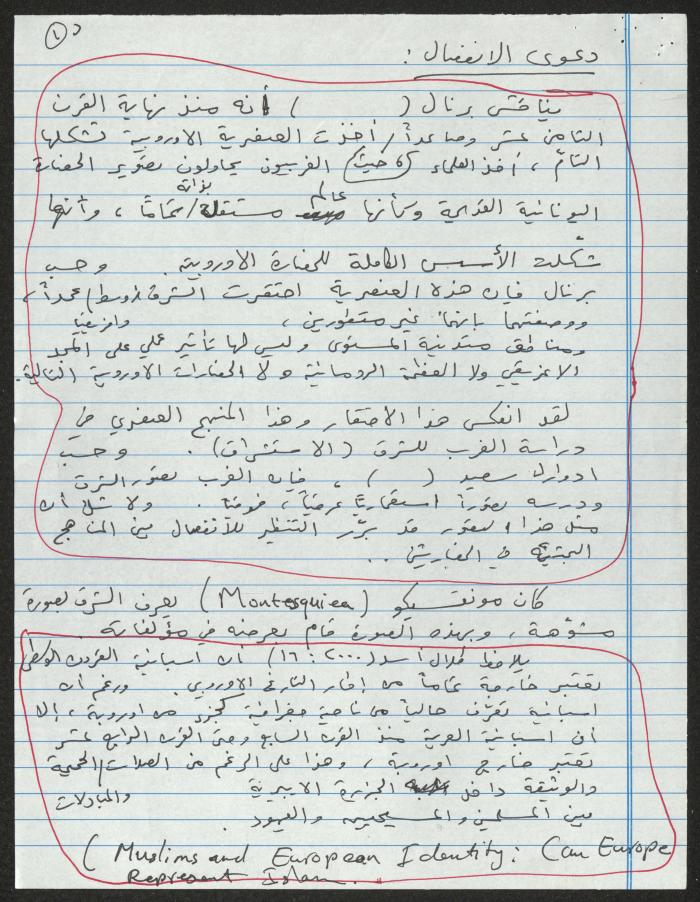 د ١
دعوى الانفصال :
يناقش برنال (    ) أنه منذ نهاية القرن
الثامن عشر وصاعداً / أخذت العنصرية الاوروبية تشكلها
التام ، أخذ العلماء الغربيون يحاولون تصوير الحضارة
بذاته
اليونانية القديمة وكأنها عالم مستقل / تماماً ، وأنها
شكلت الأسس الكاملة للحضارة الاوروبية . وحسب
برنال فإن هذه العنصرية احتقرت الشرق اوسط / عمداً ،
وافريقيا
ووصفتهما بانهما غير متطورين ،
ومناطق متدنية المستوى وليس لها تأثير على المجد
الاغريقي ولا العظمة الرومانية ولا الحضارات الاوروبية التالية .
لقد انعكس هذا الاحتقار وهذا المنهج العنصري في
دراسة الغرب للشرق (الاستشراق) . وحسب
ادوارد سعيد (    ) ، فإن الغرب تصور الشرق
ودرسه تصوراً استعماريّاً عرضيّاً ، فوقيّاً . ولا شك أن
مثل هذا التصور قد برّر التنظير للأنفصال بين المناهج
البحثية في الحضارتين ...
كان مونتسكيو (Montesquiea) يعرف الشرق بصورة
مشوّهة ، وبهذه الصورة قام بعرضه في مؤلفاته .
يلاحظ طلال أسد (٢٠٠٠ : ١٦) أن اسبانية القرون الوسطى
تعتبر خارجة تماماً من إطار التاريخ الاوروبي . ورغم أن
اسبانية تعرّف حالياً من ناحية جغرافية كجزء من اوروبة ، إلا
أن اسبانية العربية منذ القرن السابع وحتى القرن الرابع عشر
تعتبر خارج اوروبة ، وهذا على الرغم من الصلات / الحميمة
والوثيقة داخل الجزيرة الايبيرية والمبادلات
بين المسلمين والمسيحيين واليهود .
( Muslims and European Identity: Can Europe
Represent Islam.